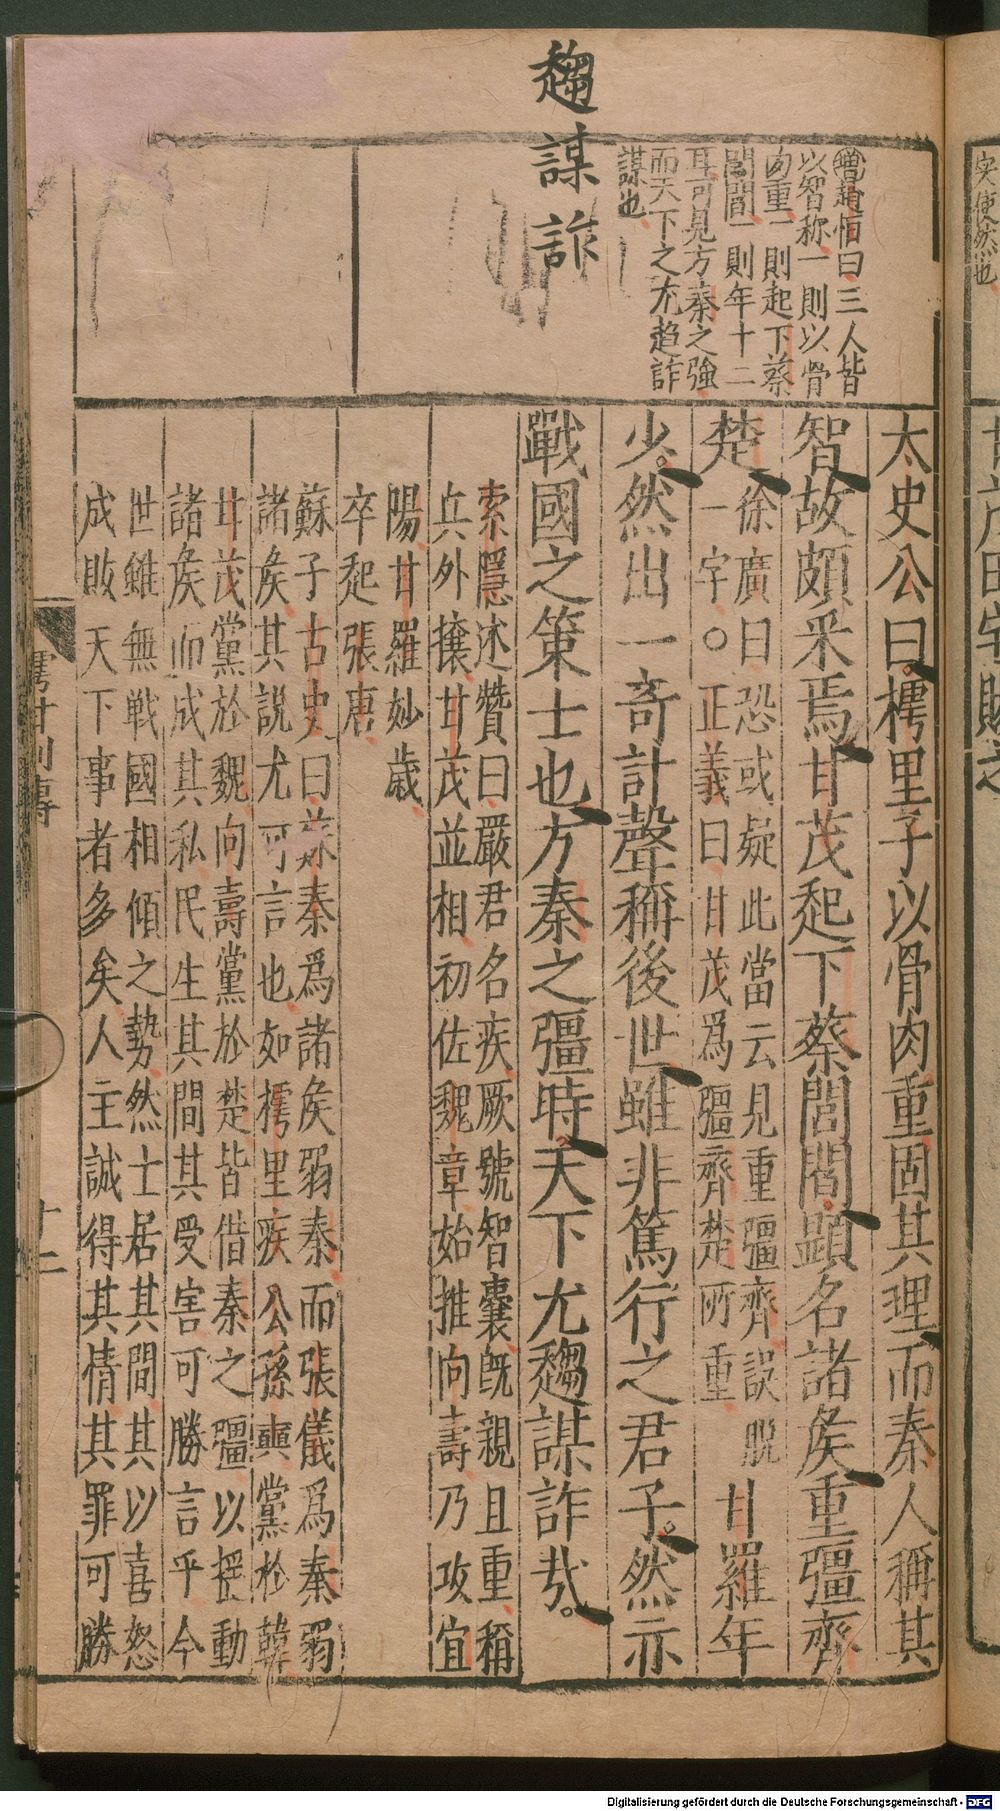 趨謀詐
增趙恒曰三人皆
以智称一則以骨
肉重一則起下蔡
閭閻一則年十二
耳可見方秦之強
而天下之尤趋詐
謀也
太史公曰樗里子以骨肉重固其理而秦人稱其
智故頗采焉甘茂起下蔡閭閻顯名諸矦重彊齊
楚
徐廣曰恐或疑此當云見重彊齊誤脫
一字○正義曰甘茂爲彊齊楚所重
甘羅年
少然出一奇計聲稱後世雖非篤行之君子然亦
戰國之策士也方秦之彊時天下尤趨謀詐哉
索隱述贊曰嚴君名疾厥號智囊旣親且重稱
兵外攘甘茂並相初佐魏章始推向壽乃攻宜
陽甘羅妙歲
卒起張唐
蘇子古史曰蘇秦爲諸矦弱秦而張儀爲秦弱
諸矦其說尤可言也如樗里疾公孫奭黨於韓
甘茂黨於魏向壽黨於楚皆借秦之彊以搖動
諸矦而成其私民生其間其受害可勝言乎今
世雖無戰國相傾之勢然士居其間其以喜怒
成敗天下事者多矣人主誠得其情其罪可勝
樗甘列傳
十二
实使然也
Digitalisierung gefördert durch die Deutsche Forschungsgemeinschaft - DFG